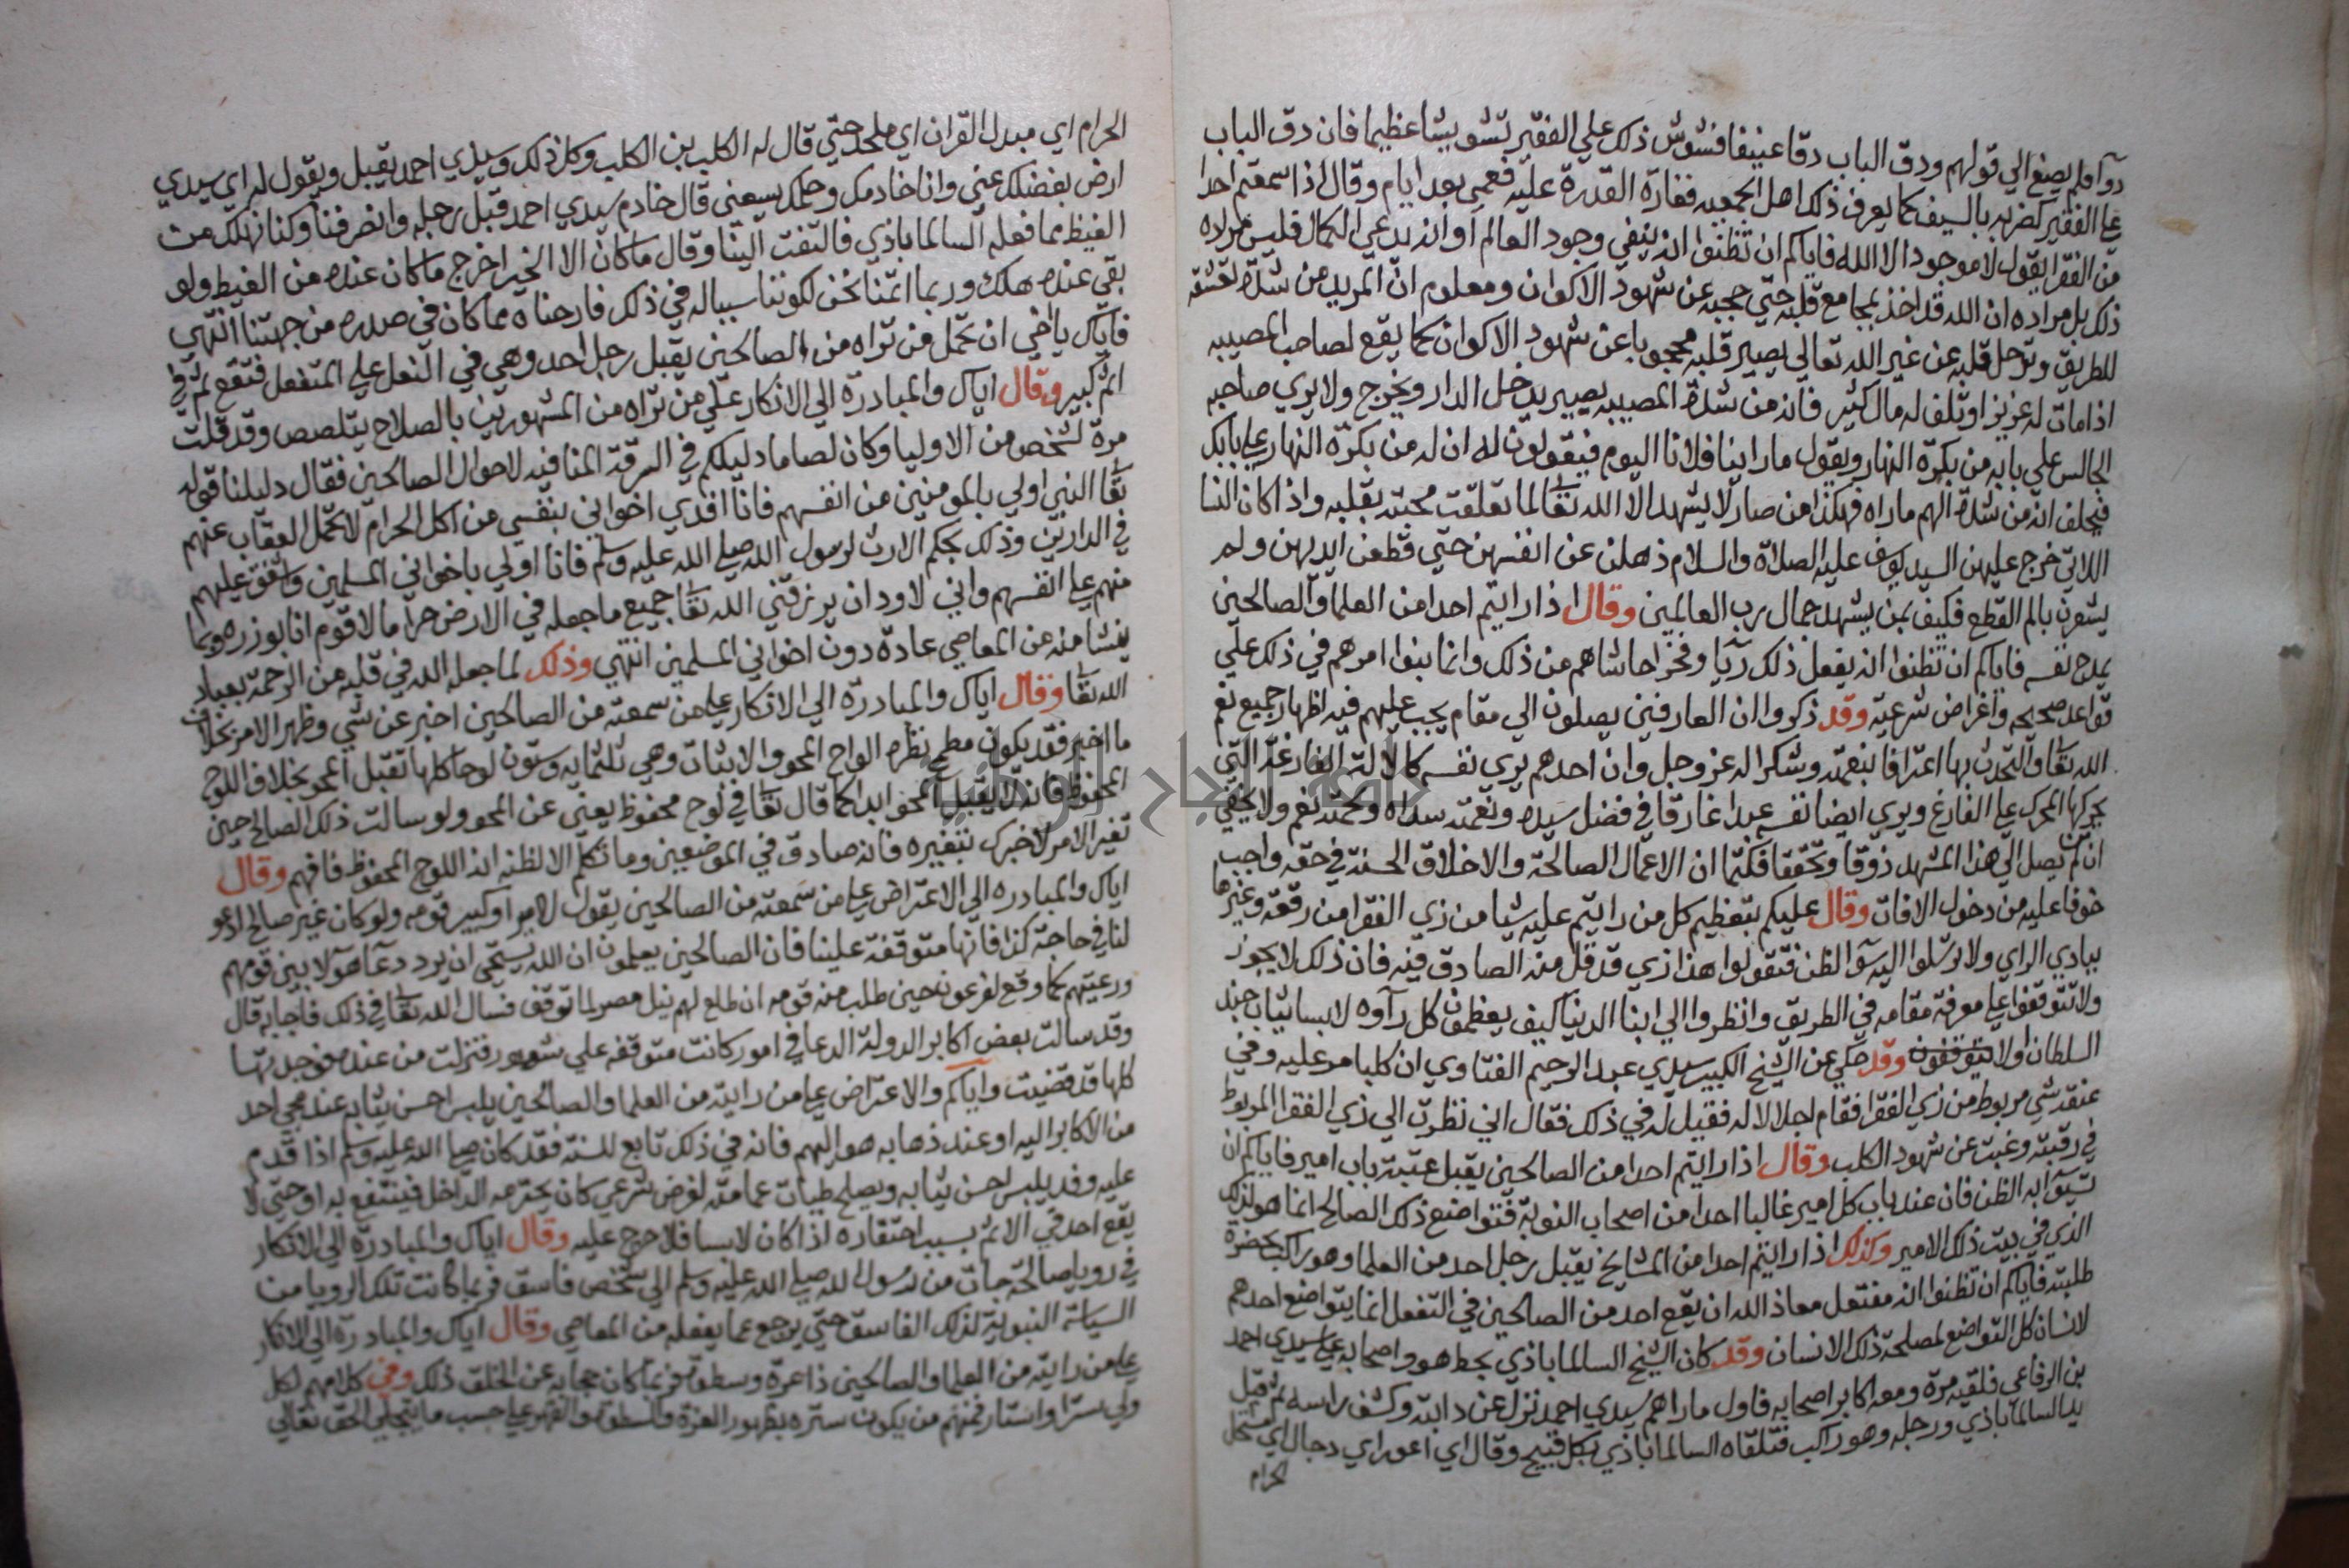 دوآ فلم يصغ الي قولهم ودق الباب دقا عنيفا فشوش ذلك علي الفقير تشويشا عظيما فان دق الباب
علي الفقير كضربه بالسيف كما يعرف ذلك اهل الجمعيه فغارة القدرة عليه فعمي بعد ايام وقال اذا سمعتم احدا
من الفقرا يقول لا موجود الا الله فاياكم ان تظنوا انه ينفي وجود العالم او انه يدعي الكمال فليس مراده
ذلك بل مراده ان الله قد اخذ بمجامع قلبه حتي حجبه عن شهود الاكوان ومعلوم ان المريد من شدة تعشقه
للطريق وترحل قلبه عن غير الله تعالي يصير قلبه محجوبا عن شهود الاكوان كما يقع لصاحب المصيبه
اذا مات له عزيز او تلف له مال كثير فانه من شدة المصيبه يصير يدخل الدار ويخرج ولا يري صاحبه
الجالس علي بابه من بكرة النهار ويقول ما راينا فلانا اليوم فيقولون له ان له من بكرة النهار علي بابك
فيحلف انه من شدة الهم ما راه فهكذا من صار لا يشهد الا الله تعا لما تعلقت محبته بقلبه واذا كان النسا
اللاتي خرج عليهن السيد يوسف عليه الصلاة والسلام ذهلن عن انفسهن حتي قطعن ايديهن ولم
يشعرن بالم القطع فكيف بمن يشهد جمال رب العالمين وقال اذا رايتم احدا من العلما والصالحين
يمدح نفسه فاياكم ان تظنوا انه يفعل ذلك ريا وفخرا حاشاهم من ذلك وانما بنوا امرهم في ذلك علي
قواعد صحيحه واغراض شرعيه وقد ذكروا ان العارفين يصلون الي مقام يجب عليهم فيه اظهار جميع نعم
الله تعا والتحدث بها اعترافا بنعمته وشكرا له عز وجل وان احدهم يري نفسه كالالة الفارغة التي
يحركها المحرك علي الفارغ ويري ايضا نفسه عبدا غارقا في فضل سيده ونعمته سداه ولحمته نعم ولا يخفي
ان من يصل الي هذا المشهد ذوقا وتحققا فكتما ان الاعمال الصالحة والاخلاق الحسنة في حقه واجب
خوفا عليه من دخول الافات وقال عليكم بتعظيم كل من رايتم عليه شيا من زي الفقرا من رقعة وغيرها
ببادي الراي ولا ترسلوا اليه سوآ الظن فتقولوا هذا زي قد قل منه الصادق فيه فان ذلك لا يجوز
ولا تتوقفوا علي معرفة مقامه في الطريق وانظروا الي ابنا الدنيا كيف يعظمون كل من رآوه لابسا ثياب جند
السلطان اولا يتوقفون وقد حكي عن الشيخ الكبير سيدي عبد الرحيم القناوي ان كلبا مر عليه وفي
عنقه شي مربوط من زي الفقرا فقام اجلالا له فقيل له في ذلك فقال اني نظرت الي زي الفقرا المربوط
في رقبته وغبت عن شهود الكلب وقال اذا رايتم احدا من الصالحين يقبل عتبة باب امير فاياكم ان
تسيوآ به الظن فان عند باب كل امير غالبا احدا من اصحاب النوبة فتواضع ذلك الصالح انما هو لذلك
الذي في بيت ذلك الامير وكذلك اذا رايتم احدا من المشايخ يقبل رجل احد من العلما وهو راكب بحضرة
طلبته فاياكم ان تظنوا انه مفتعل معاذ الله ان يقع احد من الصالحين في التفعل انما يتواضع احدهم
لانسان كل التواضع لمصلحة ذلك الانسان وقد كان الشيخ السالماباذي يحط هو واصحابه علي سيدي احمد
بن الرفاعي فلقيه مرة ومعه اكابر اصحابه فاول ما راهم سيدي احمد نزل عن دابته وكشف راسه ثم قبل
يد السالماباذي ورجله وهو راكب فتلقاه السالماباذي بكل قبيح وقال اي اعور اي دجال اي مستحل
الحرام
الحرام اي مبدل القران اي ملحد حتي قال له الكلب بن الكلب وكل ذلك وسيدي احمد يقبل ويقول له اي سيدي
ارض بفضلك عني وانا خادمك وحلمك يسعني قال خادم سيدي احمد قبل رجله وانصرفنا وكنا نهلك من
الغيظ مما فعله السالماباذي فالتفت الينا وقال ما كان الا الخير اخرج ما كان عنده من الغيظ ولو
بقي عنده هلك وربما اثمنا نحن لكوننا سببا له في ذلك فارحناه مما كان في صدره من جهتنا انتهي
فاياك يا اخي ان تحمل من تراه من الصالحين يقبل رجل احد وهي في النعل علي المتفعل فتقع ثم في
اثم كبير وقال اياك والمبادرة الي الانكار علي من تراه من المشهورين بالصلاح يتلصص وقد قلت
مرة لشخص من الاوليا وكان لصا ما دليلكم في السرقة المنافيه لاحوال الصالحين فقال دليلنا قوله
تعا النبي اولي بالمومنين من انفسهم فانا افدي اخواني بنفسي من اكل الحرام لاتحمل العقاب عنهم
في الدارين وذلك بحكم الارث لرسول الله صلي الله عليه وسلم فانا اولي باخواني المسلمين واشفق عليهم
منهم علي انفسهم واني لاود ان يرزقني الله تعا جميع ما جعله في الارض حراما لاقوم انا بوزره وبما
ينشا منه من المعاصي عادة دون اخواني المسلمين انتهي وذلك لما جعل الله في قلبه من الرحمة بعباد
الله تعا وقال اياك والمبادرة الي الانكار علي من سمعته من الصالحين اخبر عن شي وظهر الامر بخلاف
ما اخبر فقد يكون مطمح نظره الواح المحو والاثبات وهي ثلثمايه وستون لوحا كلها تقبل المحو بخلاف اللوح
المحفوظ فانه لا يقبل المحو ابدا كما قال تعا في لوح محفوظ يعني عن المحو ولو سالت ذلك الصالح حين
تغير الامر لاخبرك بتغييره فانه صادق في الموضعين وما تكلم الا لظنه انه اللوح المحفوظ فافهم وقال
اياك والمبادره الي الاعتراض علي من سمعته من الصالحين يقول لامير او كبير قومه ولو كان غير صالح ادعو
لنا في حاجة كذا فانها متوقفة علينا فان الصالحين يعلمون ان الله يستحي ان يرد دعآ هولآ بين قومهم
ورعيتهم كما وقع لفرعون حين طلب منه قومه ان طلع لهم نيل مصر لما توقف فسال الله تعا في ذلك فاجابه قال
وقد سالت بعض اكابر الدولة الدعا في امور كانت متوقفه علي شهور فنزلت من عنده فوجدتها
كلها قد قضيت واياكم والاعتراض علي من رايته من العلما والصالحين يلبس احسن ثيابه عند مجي احد
من الاكابر اليه او عند ذهابه هو اليهم فانه في ذلك تابع للسنة فقد كان صلي الله عليه وسلم اذا قدم
عليه وفد يلبس احسن ثيابه ويصلح طيات عمامته لغرض شرعي كان يحترمه الداخل فينتفع به او حتي لا
يقع احد في الاثم بسبب احتقاره اذا كان لابسا فلا حرج عليه وقال اياك والمبادرة الي الانكار
في رويا صالحة جات من رسول الله صلي الله عليه وسلم الي شخص فاسق فربما كانت تلك الرويا من
السياسة النبوية لذلك الفاسق حتي يرجع عما يفعله من المعاصي وقال اياك والمبادرة الي الانكار
علي من رايته من العلما والصالحين ذا عزة وسطوة فربما كان حجابه عن الخلق ذلك وفي كلامهم لكل
ولي ستر او استار فمنهم من يكون ستره بظهور العزة والسطوة والقهر علي حسب ما يتجلي الحق تعالي